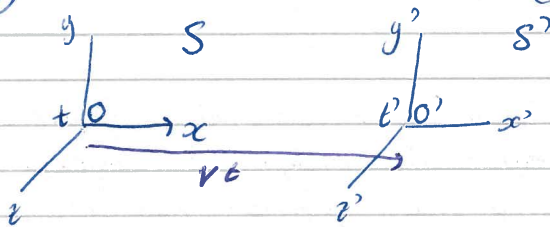 y S y' S'
t O x t' O' x'
vt
z z'